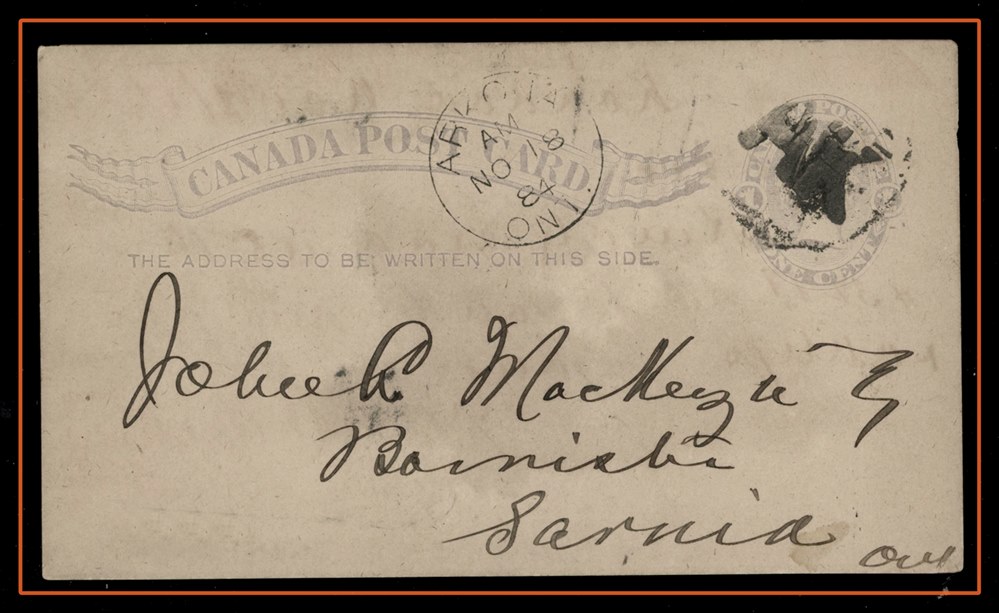 CANADA POST CARD.
ARKONA
AM
NO 8
84
ONT.
THE ADDRESS TO BE WRITTEN ON THIS SIDE.
ONE CENT
John A. MacKenzie Esq
Barrister
Sarnia
Ont